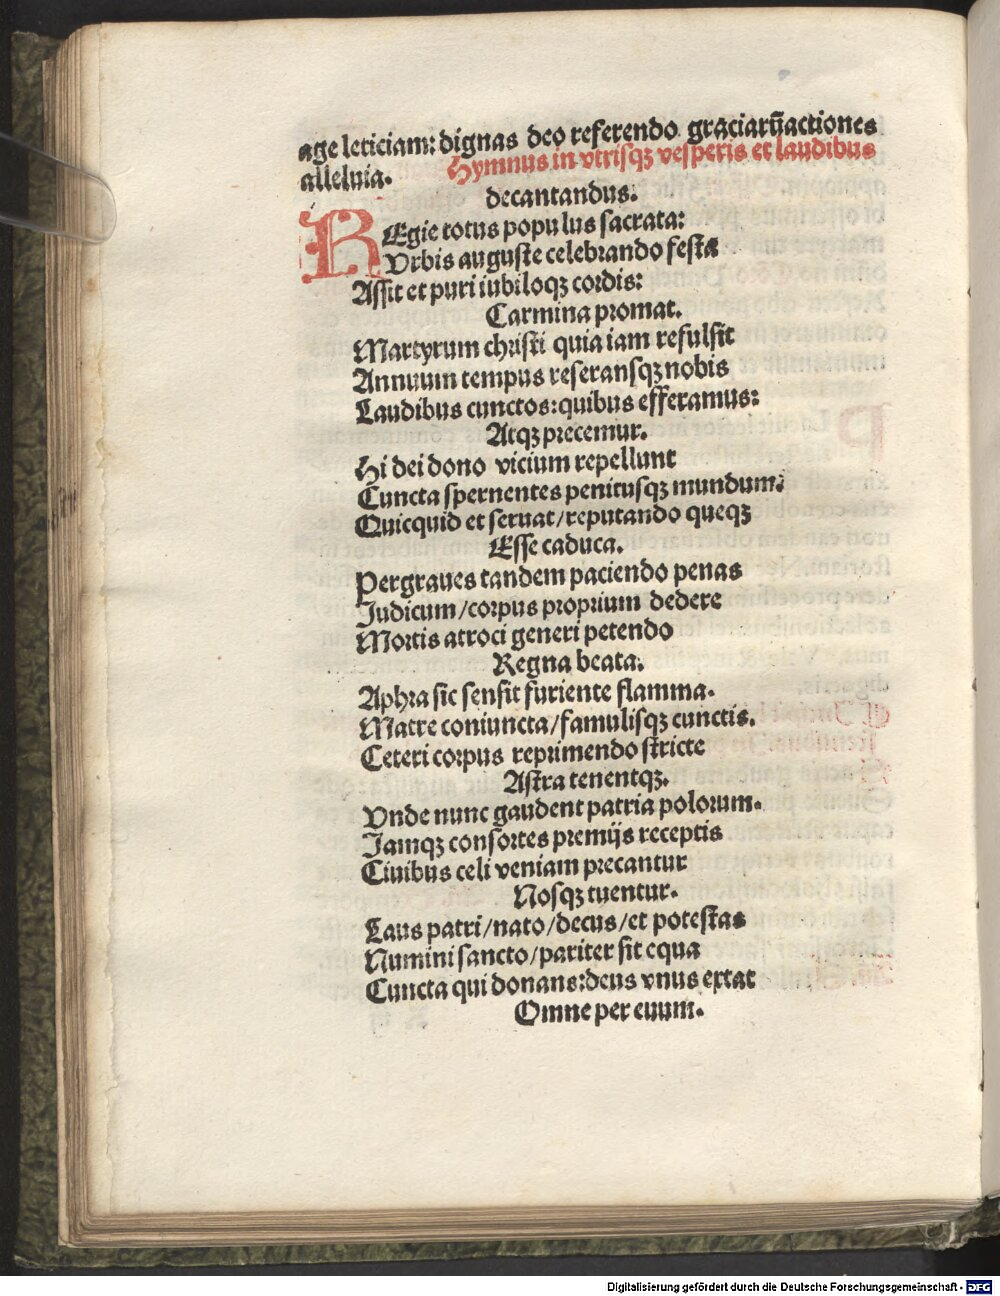 age leticiam: dignas deo referendo graciarũactiones
alleluia. Hymnus in vtrisqꝫ vesperis et laudibus
decantandus.
REgie totus populus sacrata:
Vrbis auguste celebrando festa
Assit et puri iubiloqꝫ cordis:
Carmina promat.
Martyrum christi quia iam refulsit
Annuum tempus reseransqꝫ nobis
Laudibus cunctos: quibus efferamus:
Atqꝫ precemur.
Hi dei dono vicium repellunt
Cuncta spernentes penitusqꝫ mundum:
Quicquid et seruat/reputando queqꝫ
Esse caduca.
Pergraues tandem paciendo penas
Judicum/corpus proprium dedere
Mortis atroci generi petendo
Regna beata.
Aphra sic sensit furiente flamma.
Matre coniuncta/famulisqꝫ cunctis.
Ceteri corpus reprimendo stricte
Astra tenentqꝫ.
Vnde nunc gaudent patria polorum.
Jamqꝫ consortes premijs receptis
Ciuibus celi veniam precantur
Nosqꝫ tuentur.
Laus patri/nato/decus/et potestas
Numini sancto/pariter sit equa
Cuncta qui donans: deus vnus extat
Omne per euum.
Digitalisierung gefördert durch die Deutsche Forschungsgemeinschaft - DFG